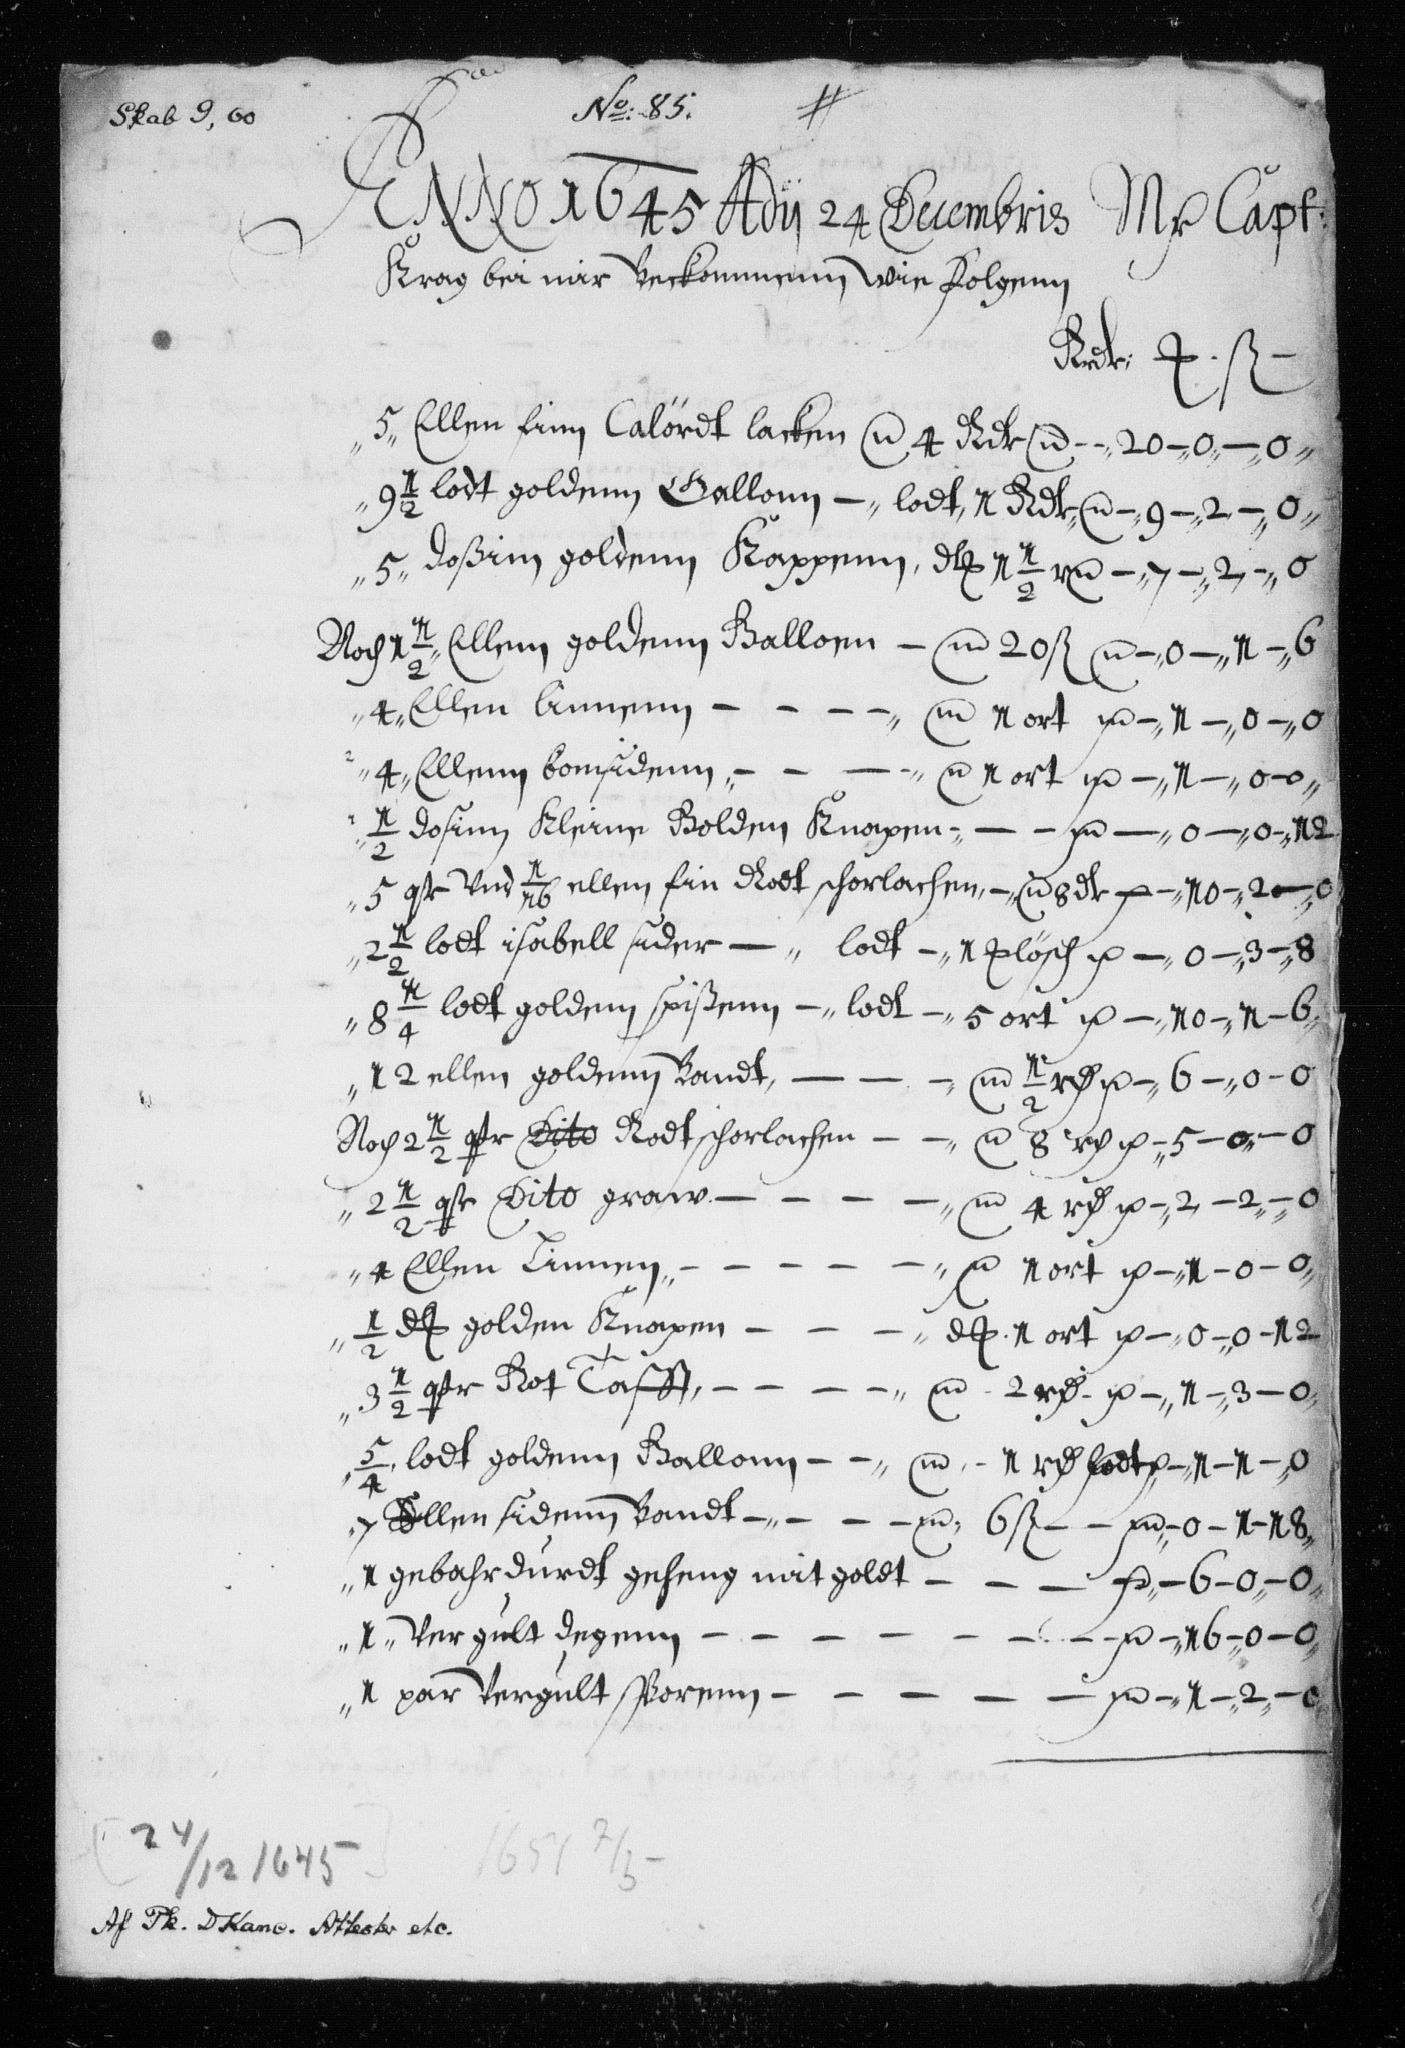 Skab 9, 60
No: 85.
ANNO 1645 Adij 24 Decembris Mr Capt:
Krag bei mir Beckommenn wie Folgenn
Rdr: ß
5 Ellen finn Calördt lacken @ 4 Rdr 20 - 0 - 0
9 1/2 lodt goldenn Gallonn - lodt 1 Rdr 9 - 2 - 0
5 doßinn goldenn Knappenn, 1 1/2 7 - 2 - 0
Noch 1 1/2 Ellenn goldenn Galloen - 20 ß 0 - 1 - 6
4 Ellen linnenn - 1 ort 1 - 0 - 0
4 Ellenn bomsidenn - 1 ort 1 - 0 - 0
1/2 dosinn Kleine Golden Knapen - 0 - 0 - 12
5 qtr Und 1/16 ellen fin Rodt schorlachen - 8 dr 10 - 2 - 0
2 1/2 lodt isabell sider - lodt - 1 0 - 3 - 8
8 1/4 lodt goldenn spißenn - lodt - 5 ort 10 - 1 - 6
12 ellen goldenn Bandt - 1/2 rd 6 - 0 - 0
Noch 2 1/2 qtr Dito Rodt schorlachen - 8 rd 5 - 0 - 0
2 1/2 qtr Dito graw - 4 rd 2 - 2 - 0
4 Ellen Linnen - 1 ort 1 - 0 - 0
1/2 golden Knapen - 1 ort 0 - 0 - 12
3 1/2 qtr Rot Tafft - 2 rd 1 - 3 - 0
5/4 lodt goldenn Gallonn - 1 rd lodt 1 - 1 - 0
7 Ellen sidenn Bandt - 6 ß 0 - 1 - 18
1 geheng mit goldt - 6 - 0 - 0
1 Vergult degenn - 16 - 0 - 0
1 par Vergult sporenn - 1 - 2 - 0
[24/12 1645] 1651 7/3
Af Tk. D Kanc. Attester etc.